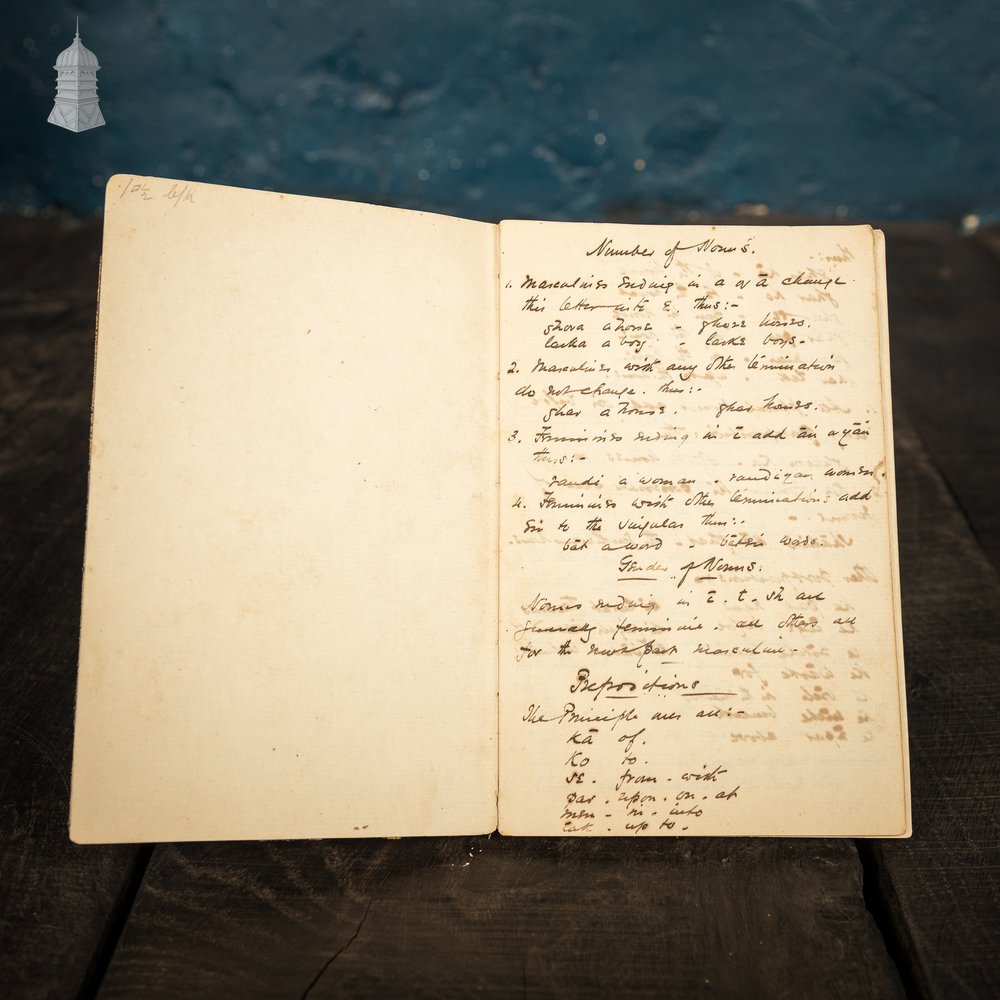 Number of Nouns.
1. Masculines ending in a or ā change
this letter into E. thus:-
ghora a horse - ghore horses.
larka a boy. - larke boys-
2. Masculines with any other termination
do not change. thus:-
ghar a house. ghar houses.
3. Feminines ending in ī add ān or yān
thus:-
randi a woman. randiyan women.
4. Feminines with other terminations add
to the singular thus:-
bāt a word - words.
Gender of Nouns.
Nouns ending in ī. t. sh are
generally feminine. all others are
for the most part masculine-
Prepositions
The Principle ones are:-
Kā of.
Ko to.
SE. from. with
par. upon. on. at
men - in. into
tak. up to.